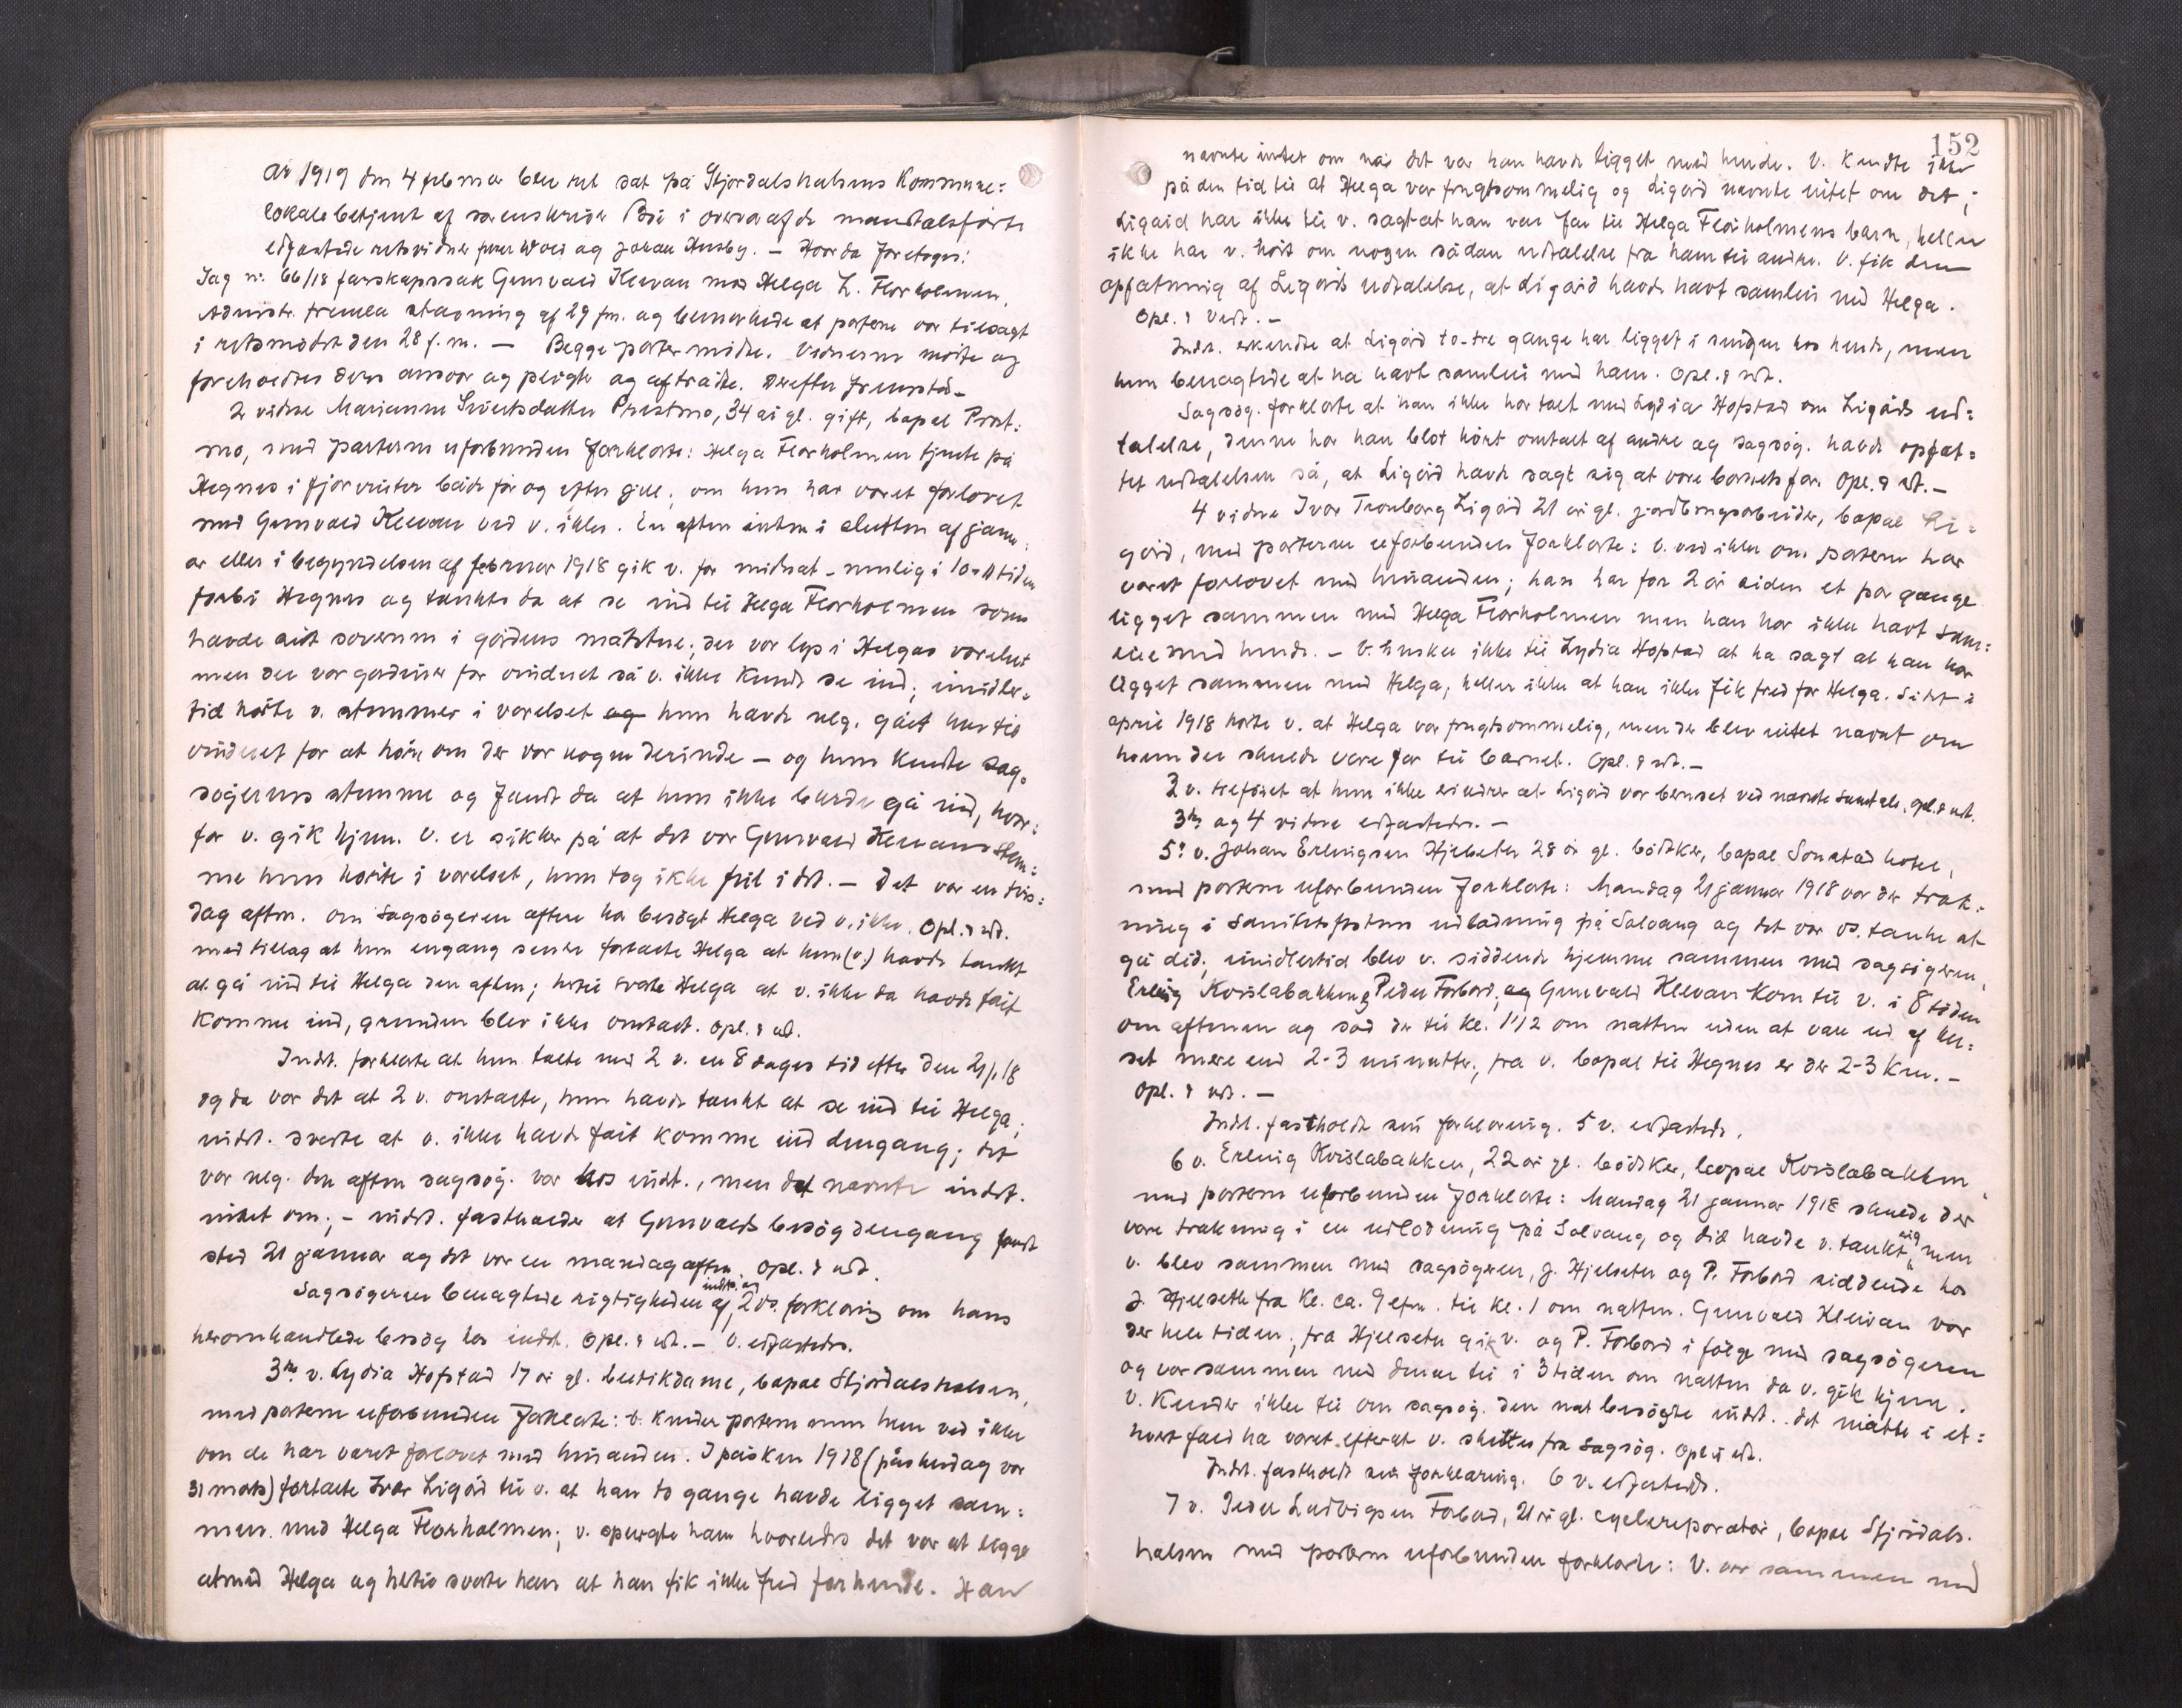 År 1919 den 4 februar blev ret sat på Stjørdalshalsens Kommune=
lokale betjent af sorenskriver Bøe i overvær af de mandtalsførte
edfæstede retsvidner Wold og Johan Husby. - Hvorda foretoges:
Sag nr. 66/18 farskapssak Gunvald Klevan mod Helga L. Florholmen.
Adminstr. fremla stævning af 29 f.m. og bemærkede at parterne var tilsagt
i retsmødet den 28 f.m. - Begge parter mødte. Vidnerne mødte og
foreholdtes deres ansvar og pligter og aftrådte. Derefter fremstod
2 vidne Marianne Sivertsdatter Prestmo, 34 år gl. gift, bopæl Prest=
mo, med parterne uforbunden forklarte: Helga Florholmen tjente på
Hegnes i fjor vinter både før og efter jul; om hun har været forlovet
med Gunvald Klevan ved v. ikke. En aften enten i slutten af janu=
ar eller i begyndelsen af februar 1918 gik v. før midnat - mulig i 10-11 tiden
forbi Hegnes og tænkte da at se ind til Helga Florholmen som
havde sit soverum i gårdens masstue; der var lys i Helgas værelse
men der var gardiner for vinduet så v. ikke kunde se ind; imidler=
tid hørte v. stemmer i værelset og hun havde nlg. gået hen til
vinduet for at høre om der var nogen derinde - og hun kendte sag=
søgerens stemme og fandt da at hun ikke burde gå ind, hvor=
for v. gik hjem. V. er sikker på at det var Gunvald Klevans stem=
me hun hørte i værelset, hun tog ikke feil i det. - Det var en tirs=
dag aften. Om sagsøgeren oftere ha besøgt Helga ved v. ikke. Opl. & vdt.
med tillæg at hun engang senere fortalte Helga at hun (v.) havde tænkt
at gå ind til Helga den aften; hertil svarte Helga at v. ikke da havde fåit
komme ind, grunden blev ikke omtalt. Opl. & vdt.
Indst. forklarte at hun talte med 2 v. en 8 dages tid efter den 21/1 18
og da var det at 2 v. omtalte, hun havde tænkt at se ind til Helga;
indst. svarte at v. ikke havde fåit komme ind dengang; det
var nlg. den aften sagsøg. var hos indst., men det nævnte indst.
intet om; - indst. fastholder at Gunvalds besøg dengang fandt
sted 21 januar og det var en mandag aften. Opl. & vdt.
Sagsøgeren benægtede rigtigheden af indst. og 2 vs. forklaring om hans
heromhandlede besøg hos indst. Opl. & vdt. - V. edfæstedes.
3die v. Lydia Hofstad 17 år gl. butikdame, bopæl Stjørdalshalsen,
med parterne uforbunden forklarte: v. kender parterne men hun ved ikke
om de har været forlovet med hinanden. I påsken 1918 (påskedag var
31 marts) fortalte Ivar Ligård til v. at han to gange havde ligget sam=
men med Helga Florholmen; v. spurgte ham hvorledes det var at ligge
atmed Helga og hertil svarte han at han fik ikke fred for hende. Han
152
nævnte intet om når det var han havde ligget med hende. V. kendte ikke
på den tid til at Helga var frugtsommelig og Ligård nævnte intet om det;
Ligård har ikke til v. sagt at han var far til Helga Florholmens barn, heller
ikke har v. hørt om nogen sådan udtalelse fra ham til andre. V. fik den
opfatning af Ligårds udtalelse, at Ligård havde havt samleie med Helga.
Opl. & vedt. -
Indst. erkendte at Ligård to-tre gange har ligget i sengen hos hende, men
hun benægtede at ha havt samleie med ham. Opl. & vdt.
Sagsøg. forklarte at han ikke har talt med Lydia Hofstad om Ligårds ud=
talelse, denne har han blot hørt omtalt af andre og sagsøg. havde opfat=
tet udtalelsen så, at Ligård havde sagt sig at være barnets far. Opl. & vdt. -
4 vidne Ivar Tronborg Ligård 21 år gl. jordbrugsarbeider, bopæl Li=
gård, med parterne uforbunden forklarte: V. ved ikke om parterne har
været forlovet med hinanden; han har for 2 år siden et par gange
ligget sammen med Helga Florholmen men han har ikke havt sam=
leie med hende. - V. husker ikke til Lydia Hofstad at ha sagt at han har
ligget sammen med Helga, heller ikke at han ikke fik fred for Helga. Sidst i
april 1918 hørte v. at Helga var frugtsommelig, men der blev intet nævnt om
hvem der skulde være far til barnet. Opl. & vdt. -
3 v. tilføiet at hun ikke erindrer at Ligård var beruset ved nævnte samtale. Opl. & vdt.
3die og 4 vidne edfæstedes. -
5te v. Johan Erlingsen Hjelseter 28 år gl. bødtker, bopæl Sonstad hotel,
med parterne uforbunden forklarte: Mandag 21 januar 1918 var der træk=
ning i Sanitetsforeningens udlodning på Solvang og det var vs. tanke at
gå did; imidlertid blev v. siddende hjemme sammen med sagsøgeren,
Erling Kvislabakken, Peder Forbord, og Gunvald Klevan kom til v. i 8 tiden
om aftenen og sad der til kl. 1 1/2 om natten uden at være ud af hu=
set mere end 2-3 minutter; fra v. bopæl til Hegnes er der 2-3 km. -
Opl. & vdt. -
Indst. fastholdt sin forklaring. 5 v. edfæstedes.
6 v. Erling Kvislabakken, 22 år gl. bødtker, bopæl Kvislabakken
med parterne uforbunden forklarte: Mandag 21 januar 1918 skulde der
være trækning i en udlodning på Solvang og did havde v. tænkt sig, men
v. blev sammen med sagsøgeren, J. Hjelseter og P. Forbord siddende hos
J. Hjelseth fra kl. ca. 9 efm. til kl. 1 om natten. Gunvald Klevan var
der hele tiden; fra Hjelseter gik v. og P. Forbord i følge med sagsøgeren
og var sammen med denne til i 3 tiden om natten da v. gik hjem.
V. kender ikke til om sagsøg. den nat besøgte indst. det måtte i et=
hvert fald ha været efterat v. skiltes fra sagsøg. Opl. & vdt.
Indst. fastholdt sin forklaring. 6 v. edfæstedes.
7 v. Peder Ludvigsen Forbord, 21 år gl. cyclereparatør, bopæl Stjørdals=
halsen med parterne uforbunden forklarte: V. var sammen med